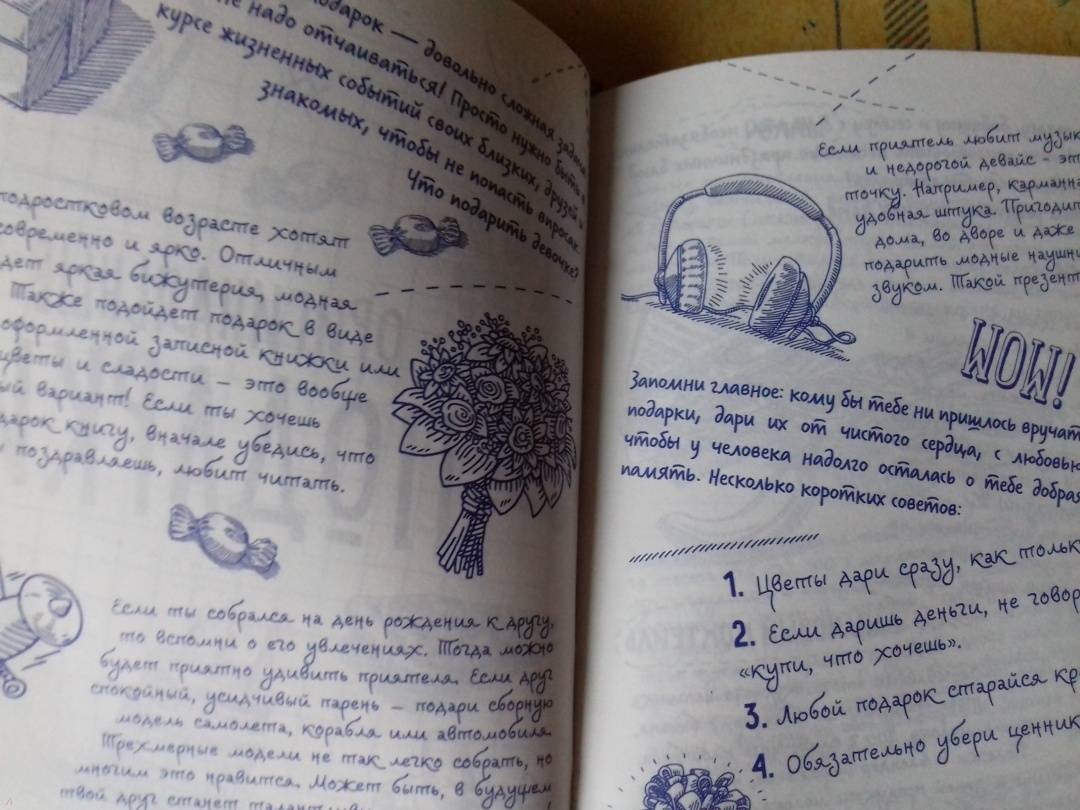 подарок — довольно сложная задача
не надо отчаиваться! Просто нужно быть в
курсе жизненных событий своих близких, друзей и
знакомых, чтобы не попасть впросак.
Что подарить девочке?
подростковом возрасте хотят
современно и ярко. Отличным
яркая бижутерия, модная
Также подойдет подарок в виде
оформленной записной книжки или
цветы и сладости — это вообще
вариант! Если ты хочешь
книгу, вначале убедись, что
поздравляешь, любит читать.
Если ты собрался на день рождения к другу,
то вспомни о его увлечениях. Тогда можно
будет приятно удивить приятеля. Если друг
спокойный, усидчивый парень — подари сборную
модель самолета, корабля или автомобиля.
Трехмерные модели не так легко собрать, но
многим это нравится. Может быть, в будущем
твой друг станет
Если приятель любит
и недорогой девайс -
точку. Например,
удобная штука. Пригодит
дома, во дворе и даже
подарить модные
звуком. Такой презент
МОМ!
Запомни главное: кому бы тебе ни пришлось вручать
подарки, дари их от чистого сердца, с любовью
чтобы у человека надолго осталась о тебе добрая
память. Несколько коротких советов:
1. Цветы дари сразу, как только
2. Если даришь деньги, не говор
«купи, что хочешь».
3. Любой подарок старайся кр
4. Обязательно убери ценник